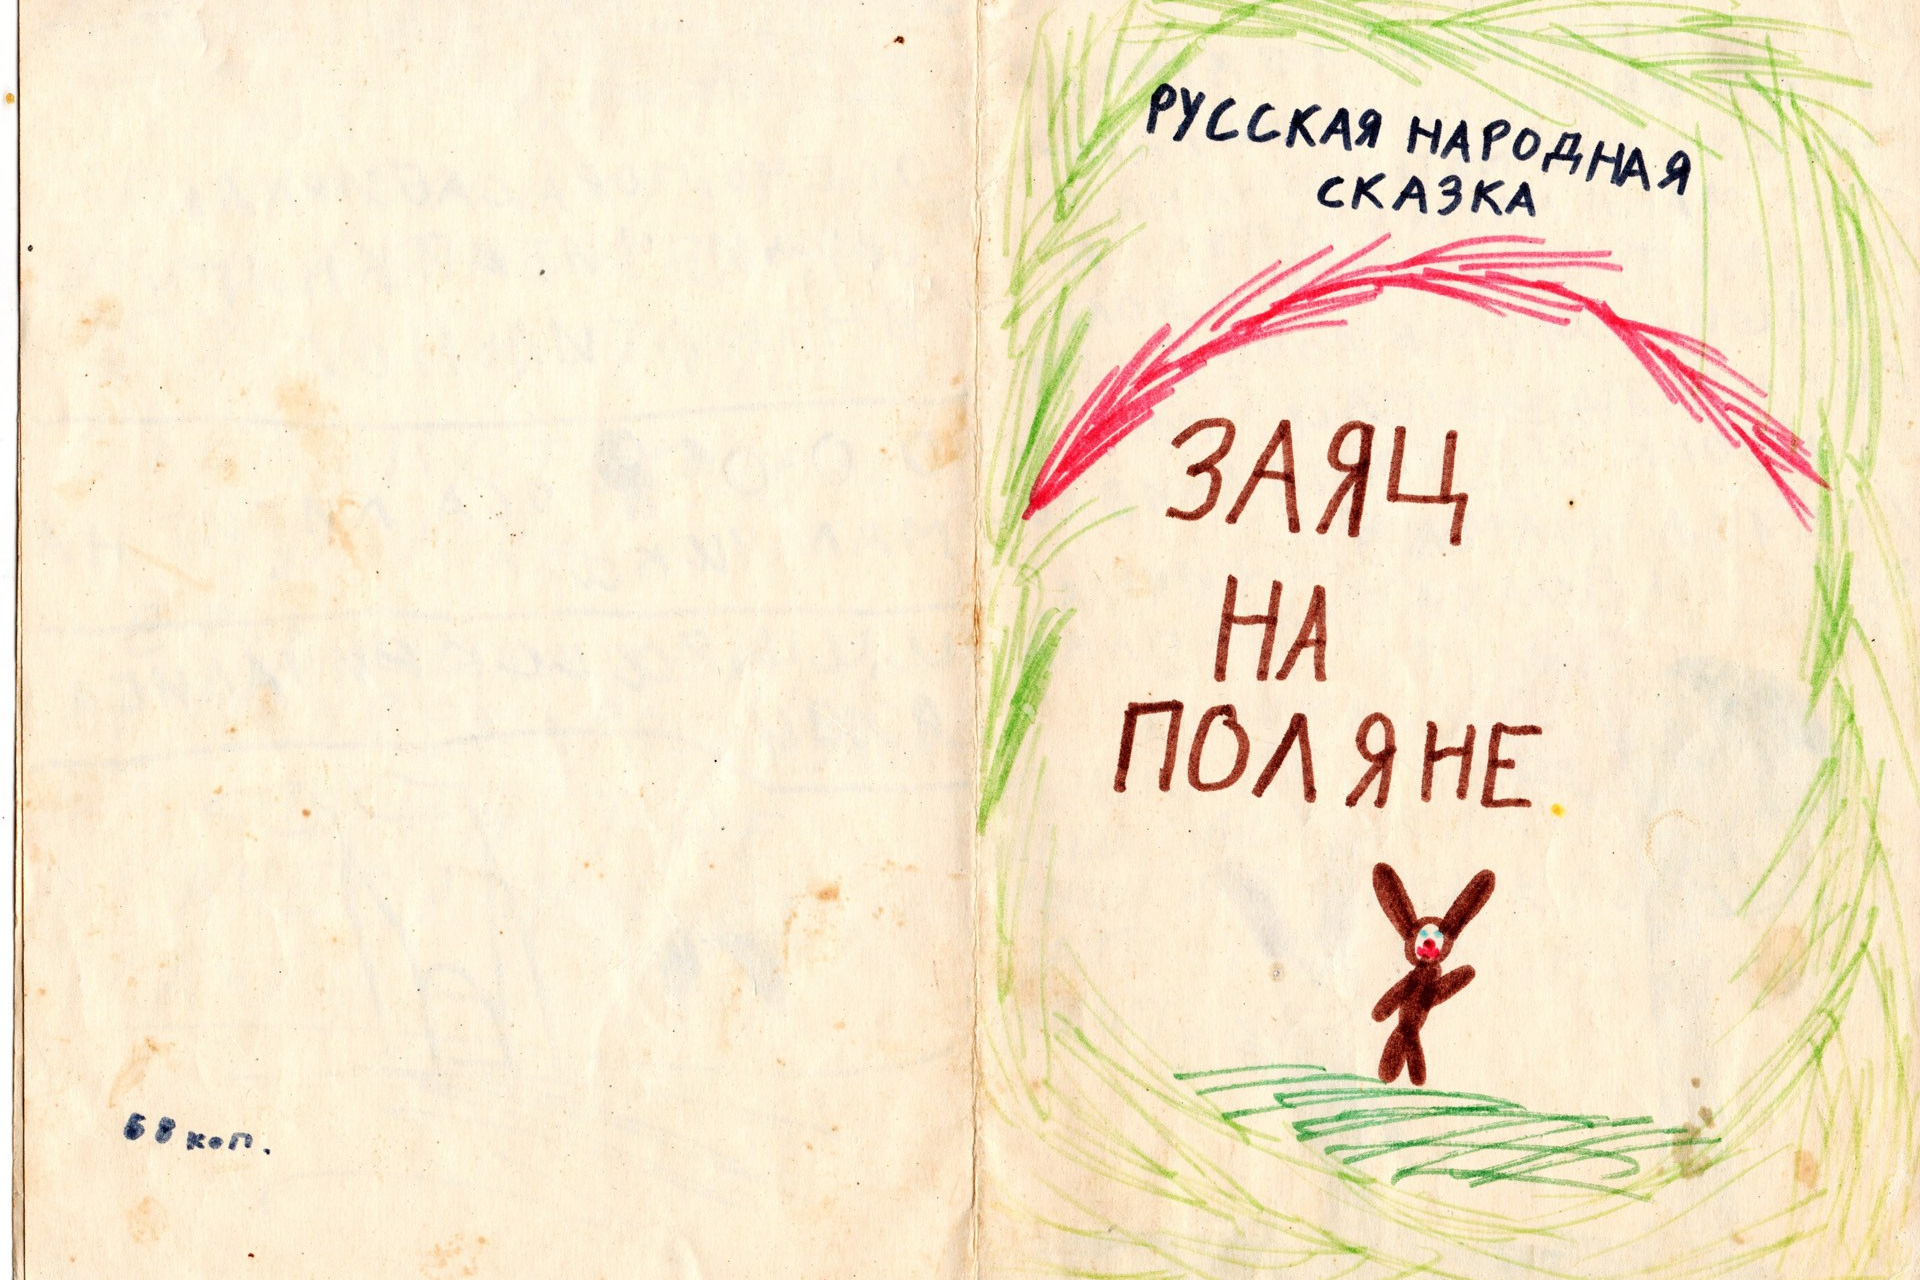 РУССКАЯ НАРОДНАЯ
СКАЗКА
ЗАЯЦ
НА
ПОЛЯНЕ
68 коп.